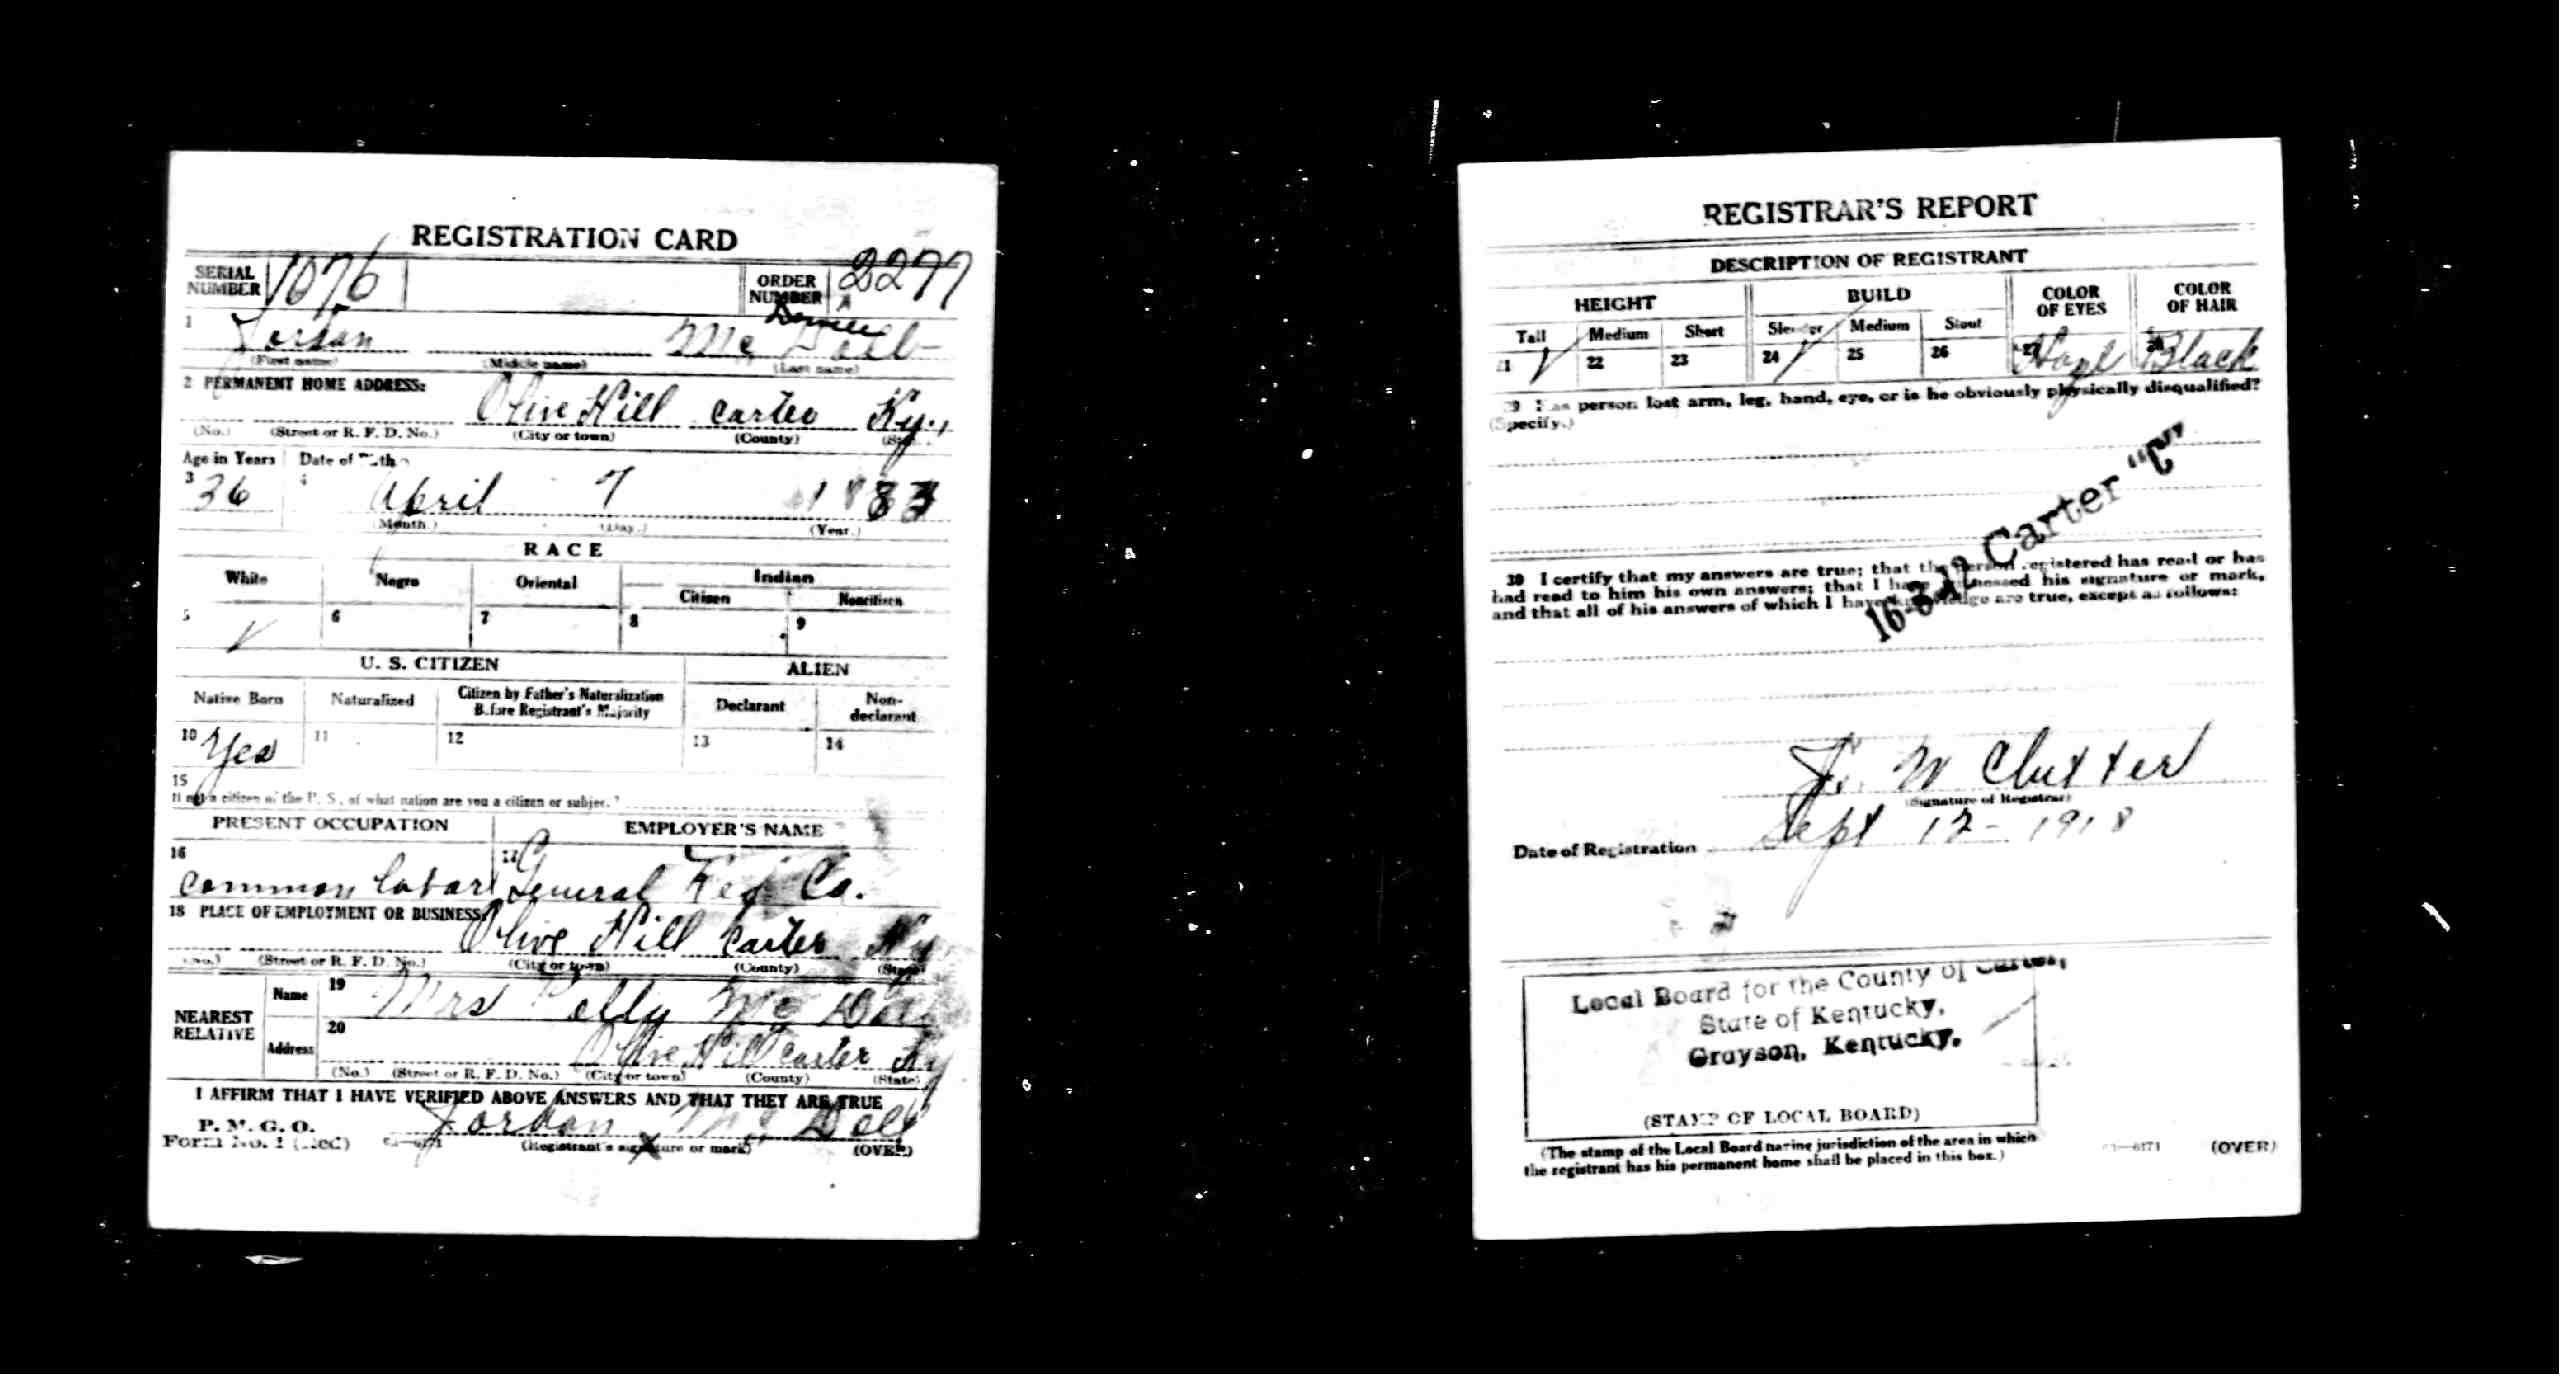 REGISTRATION CARD
SERIAL NUMBER 1076 ORDER NUMBER 2277
A
1 Jordan Mc
(First name) (Middle name) (Last name)
2 PERMANENT HOME ADDRESS:
Olive Hill Carter Ky.,
(No.) (Street or R. F. D. No.) (City or town) (County)
Age in Years Date of
3 36 4 April 7 188
(Month.) (Day.) (Year.)
RACE
White Negro Oriental Indian
Citizen Noncitizen
5 6 7 8 9
U. S. CITIZEN ALIEN
Native Born Naturalized Citizen by Father's Naturalization Before Registrant's Majority Declarant Non-declarant
10 Yes 11 12 13 14
15
If not a citizen of the U. S., of what nation are you a citizen or subject?
PRESENT OCCUPATION EMPLOYER'S NAME
16 17
common labor General Co.
18 PLACE OF EMPLOYMENT OR BUSINESS:
Olive Hill Carter Ky
(No.) (Street or R. F. D. No.) (City or town) (County) (State)
NEAREST RELATIVE Name 19 Mrs Mc
Address 20 Olive Hill carter Ky
(No.) (Street or R. F. D. No.) (City or town) (County) (State)
I AFFIRM THAT I HAVE VERIFIED ABOVE ANSWERS AND THAT THEY ARE TRUE
P. M. G. O.
Form No. 1 (Red) Jordan X Mc Dell
(Registrant's signature or mark) (OVER)
REGISTRAR'S REPORT
DESCRIPTION OF REGISTRANT
HEIGHT BUILD COLOR OF EYES COLOR OF HAIR
Tall Medium Short Slender Medium Stout
21 22 23 24 25 26 27 Hazl 28 Black
29 Has person lost arm, leg, hand, eye, or is he obviously physically disqualified?
(Specify.)
16-3-12 Carter "C"
30 I certify that my answers are true; that the person registered has read or has
had read to him his own answers; that I have witnessed his signature or mark,
and that all of his answers of which I have knowledge are true, except as follows:
J. W Clutter
(Signature of Registrar)
Date of Registration Sept 12- 1918
Local Board for the County of Carter,
State of Kentucky,
Grayson, Kentucky,
(STAMP OF LOCAL BOARD)
(The stamp of the Local Board having jurisdiction of the area in which
the registrant has his permanent home shall be placed in this box.)
(OVER)